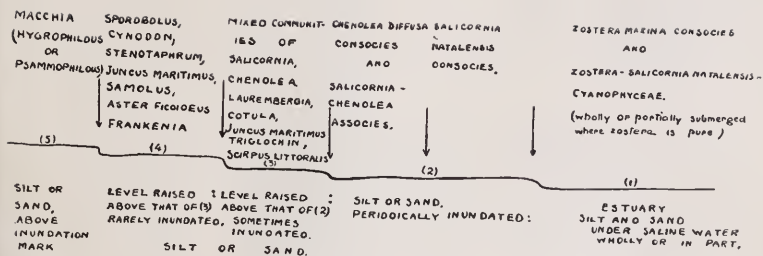 MACCHIA
(HYGROPHILOUS
OR
PSAMMOPHILOUS)
SPOROBOLUS,
CYNODON,
STENOTAPHRUM,
JUNCUS MARITIMUS,
SAMOLUS,
ASTER FICOIDEUS
FRANKENIA
MIXED COMMUNIT-
IES OF
SALICORNIA,
CHENOLEA
LAUREMBERGIA,
COTULA,
JUNCUS MARITIMUS
TRIGLOCHIN,
SCIRPUS LITTORALIS
CHENOLEA DIFFUSA
CONSOCIES
AND
SALICORNIA -
CHENOLEA
ASSOCIES.
SALICORNIA
NATALENSIS
CONSOCIES.
ZOSTERA MARINA CONSOCIES
AND
ZOSTERA-SALICORNIA NATALENSIS-
CYANOPHYCEAE.
(wholly or partially submerged
where zostera is pure)
(5)
(4)
(3)
(2)
(1)
SILT OR
SAND,
ABOVE
INUNDATION
MARK
LEVEL RAISED :
ABOVE THAT OF (3)
RARELY INUNDATED,
LEVEL RAISED :
ABOVE THAT OF (2)
SOMETIMES
INUNDATED.
SILT OR SAND.
SILT OR SAND,
PERIODICALLY INUNDATED:
ESTUARY
SILT AND SAND
UNDER SALINE WATER
WHOLLY OR IN PART.